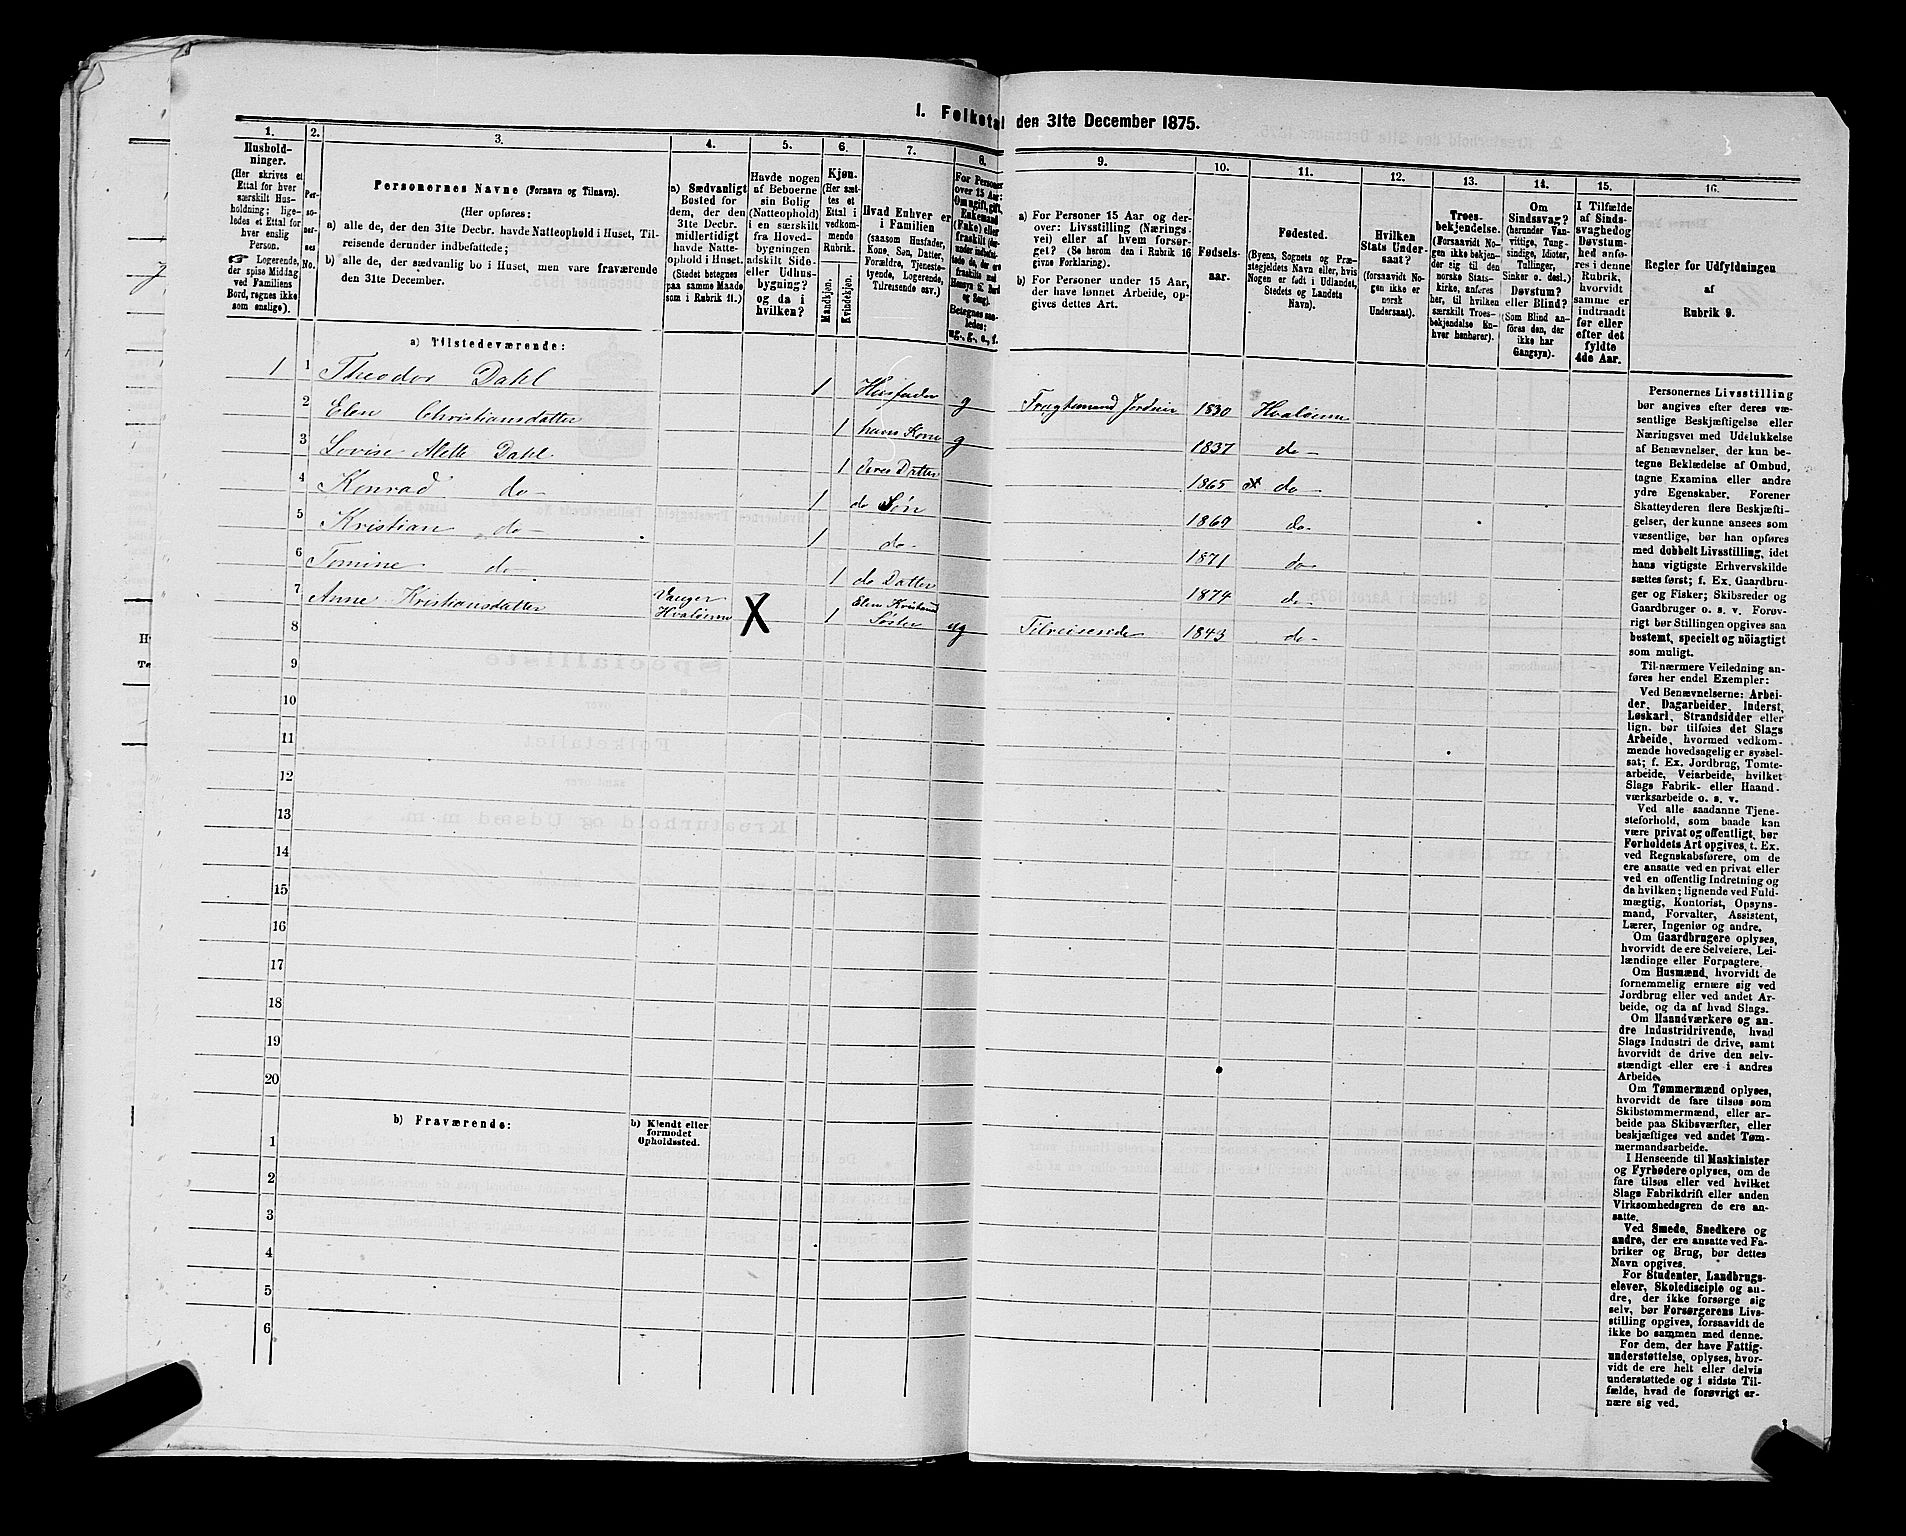 I. Folketal den 31te December 1875.
3
1.
Hushold-
ninger.
(Her skrives et
Ettal for hver
særskilt Hus-
holdning; lige-
ledes et Ettal for
hver enslig
Person.
☞ Logerende,
der spise Middag
ved Familiens
Bord, regnes ikke
som enslige).
2.
Per-
so-
ner-
nes
No.
3.
Personernes Navne (Fornavn og Tilnavn).
(Her opføres:
a) alle de, der den 31te Decbr. havde Natteophold i Huset, Til-
reisende derunder indbefattede;
b) alle de, der sædvanlig bo i Huset, men vare fraværende
den 31te December.
4.
a) Sædvanligt
Bosted for
dem, der den
31te Decbr.
midlertidigt
havde Natte-
ophold i Huset.
(Stedet betegnes
paa samme Maade
som i Rubrik 11.)
5.
Havde nogen
af Beboerne
sin Bolig
(Natteophold)
i en særskilt
fra Hoved-
bygningen
adskilt Side-
eller Udhus-
bygning?
og da i
hvilken?
6.
Kjøn.
(Her sæt-
tes et
Ettal i
vedkom-
mende
Rubrik.
Mandkjøn.
Kvindekjøn.
7.
Hvad Enhver er
i Familien
(saasom Husfader,
Kone, Søn, Datter,
Forældre, Tjeneste-
tyende, Logerende,
Tilreisende osv.)
8.
For Personer
over 15 Aar:
Om ugift, gift,
Enkemand
(Enke) eller
fraskilt (der-
under indbefat-
tede de, der ere
fraskilte med
Hensyn til Bord
og Seng).
Betegnes saa-
ledes:
ug., g., e., f.
9.
a) For Personer 15 Aar og der-
over: Livsstilling (Nærings-
vei) eller af hvem forsør-
get? (Se herom den i Rubrik 16
givne Forklaring).
b) For Personer under 15 Aar,
der have lønnet Arbeide, op-
gives dettes Art.
10.
Fødsels-
aar.
11.
Fødested.
(Byens, Sognets og Præ-
stegjeldets Navn eller, hvis
Nogen er født i Udlandet,
Stedets og Landets
Navn).
12.
Hvilken
Stats Under-
saat?
(forsaavidt No-
gen ikke er
norsk
Undersaat).
13.
Troes-
bekjendelse.
(Forsaavidt No-
gen ikke bekjen-
der sig til den
norske Stats-
kirke, anføres
her, til hvilken
særskilt Troes-
bekjendelse En-
hver henhører).
14.
Om
Sindssvag?
(herunder Van-
vittige, Tung-
sindige, Idioter,
Tullinger,
Sinker o. desl.)
Døvstum?
eller Blind?
(Som Blind an-
føres den, der
ikke har
Gangsyn).
15.
I Tilfælde
af Sinds-
svaghed og
Døvstum-
hed anfø-
res i denne
Rubrik,
hvorvidt
samme er
indtraadt
før eller
efter det
fyldte
4de Aar.
16.
Regler for Udfyldningen
af
Rubrik 9.
a) Tilstedeværende:
1 1 Theodor Dahl 1 Husfader g Fragtemand 1830 Hvaløerne
2 Elen Christiansdatter 1 hans Kone g 1837 do-
3 Lovise Alette Dahl 1 deres Datter 1865 do-
4 Konrad do- 1 do Søn 1869 do-
5 Kristian do- 1 do- 1871 do
6 Tomine do 1 do Datter 1874 do-
7 Anne Kristiansdatter Hvaløerne X 1 Elen Søster ug Tilreisende 1843 do-
8
9
10
11
12
13
14
15
16
17
18
19
20
b) Fraværende:
b) Kjendt eller
formodet
Opholdssted.
1
2
3
4
5
6
Personernes Livsstilling
bør angives efter deres væ-
sentlige Beskjæftigelse eller
Næringsvei med Udelukkelse
af Benævnelser, der kun be-
tegne Beklædelse af Ombud,
tagne Examina eller andre
ydre Egenskaber. Forener
Skatteyderen flere Beskjæfti-
gelser, der kunne ansees som
væsentlige, bør han opføres
med dobbelt Livsstilling, idet
hans vigtigste Erhvervskilde
sættes først; f. Ex. Gaardbru-
ger og Fisker; Skibsreder og
Gaardbruger o. s. v. Forøv-
rigt bør Stillingen opgives saa
bestemt, specielt og nöiagtigt
som muligt.
Til nærmere Veiledning an-
føres her endel Exempler:
Ved Benævnelserne: Arbei-
der, Dagarbeider, Inderst,
Løskarl, Strandsidder eller
lign. bør tilføies det Slags
Arbeide, hvormed vedkom-
mende hovedsagelig er syssel-
sat; f. Ex. Jordbrug, Tomte-
arbeide, Veiarbeide, hvilket
Slags Fabrik- eller Haand-
værksarbeide o. s. v.
Ved alle saadanne Tjene-
steforhold, som baade kan
være privat og offentligt, bør
Forholdets Art opgives, t. Ex.
ved Regnskabsførere, om de
ere ansatte ved en privat eller
ved en offentlig Indretning og
da hvilken; lignende ved Fuld-
mægtig, Kontorist, Opsyns-
mand, Forvalter, Assistent,
Lærer, Ingeniør og andre.
Om Gaardbrugere oplyses,
hvorvidt de ere Selveiere, Lei-
lændinge eller Forpagtere.
Om Husmænd, hvorvidt de
fornemmelig ernære sig ved
Jordbrug eller ved andet Ar-
beide, og da af hvad Slags.
Om Haandværkere og an-
dre Industridrivende, hvad
Slags Industri de drive, samt
hvorvidt de drive den selv-
stændigt eller ere i andres
Arbeide.
Om Tømmermænd oplyses,
hvorvidt de fare tilsøs som
Skibstømmermænd, eller ar-
beide paa Skibsværfter, eller
beskjæftiges ved andet Tøm-
mermandsarbeide.
I Henseende til Maskinister
og Fyrbødere oplyses, om de
fare tilsøs eller ved hvilket
Slags Fabrikdrift eller anden
Virksomhedsgren de ere an-
satte.
Ved Smede, Snedkere og
andre, der ere ansatte ved Fa-
briker og Brug, bør dettes
Navn opgives.
For Studenter, Landbrugs-
elever, Skoledisciple og an-
dre, der ikke forsørge sig
selv, bør Forsørgerens Livs-
stilling opgives, forsaavidt de
ikke bo sammen med denne.
For dem, der have Fattig-
understøttelse, oplyses, hvor-
vidt de ere helt eller delvis
understøttede og i sidste Til-
fælde, hvad de forøvrigt er-
nære sig ved.